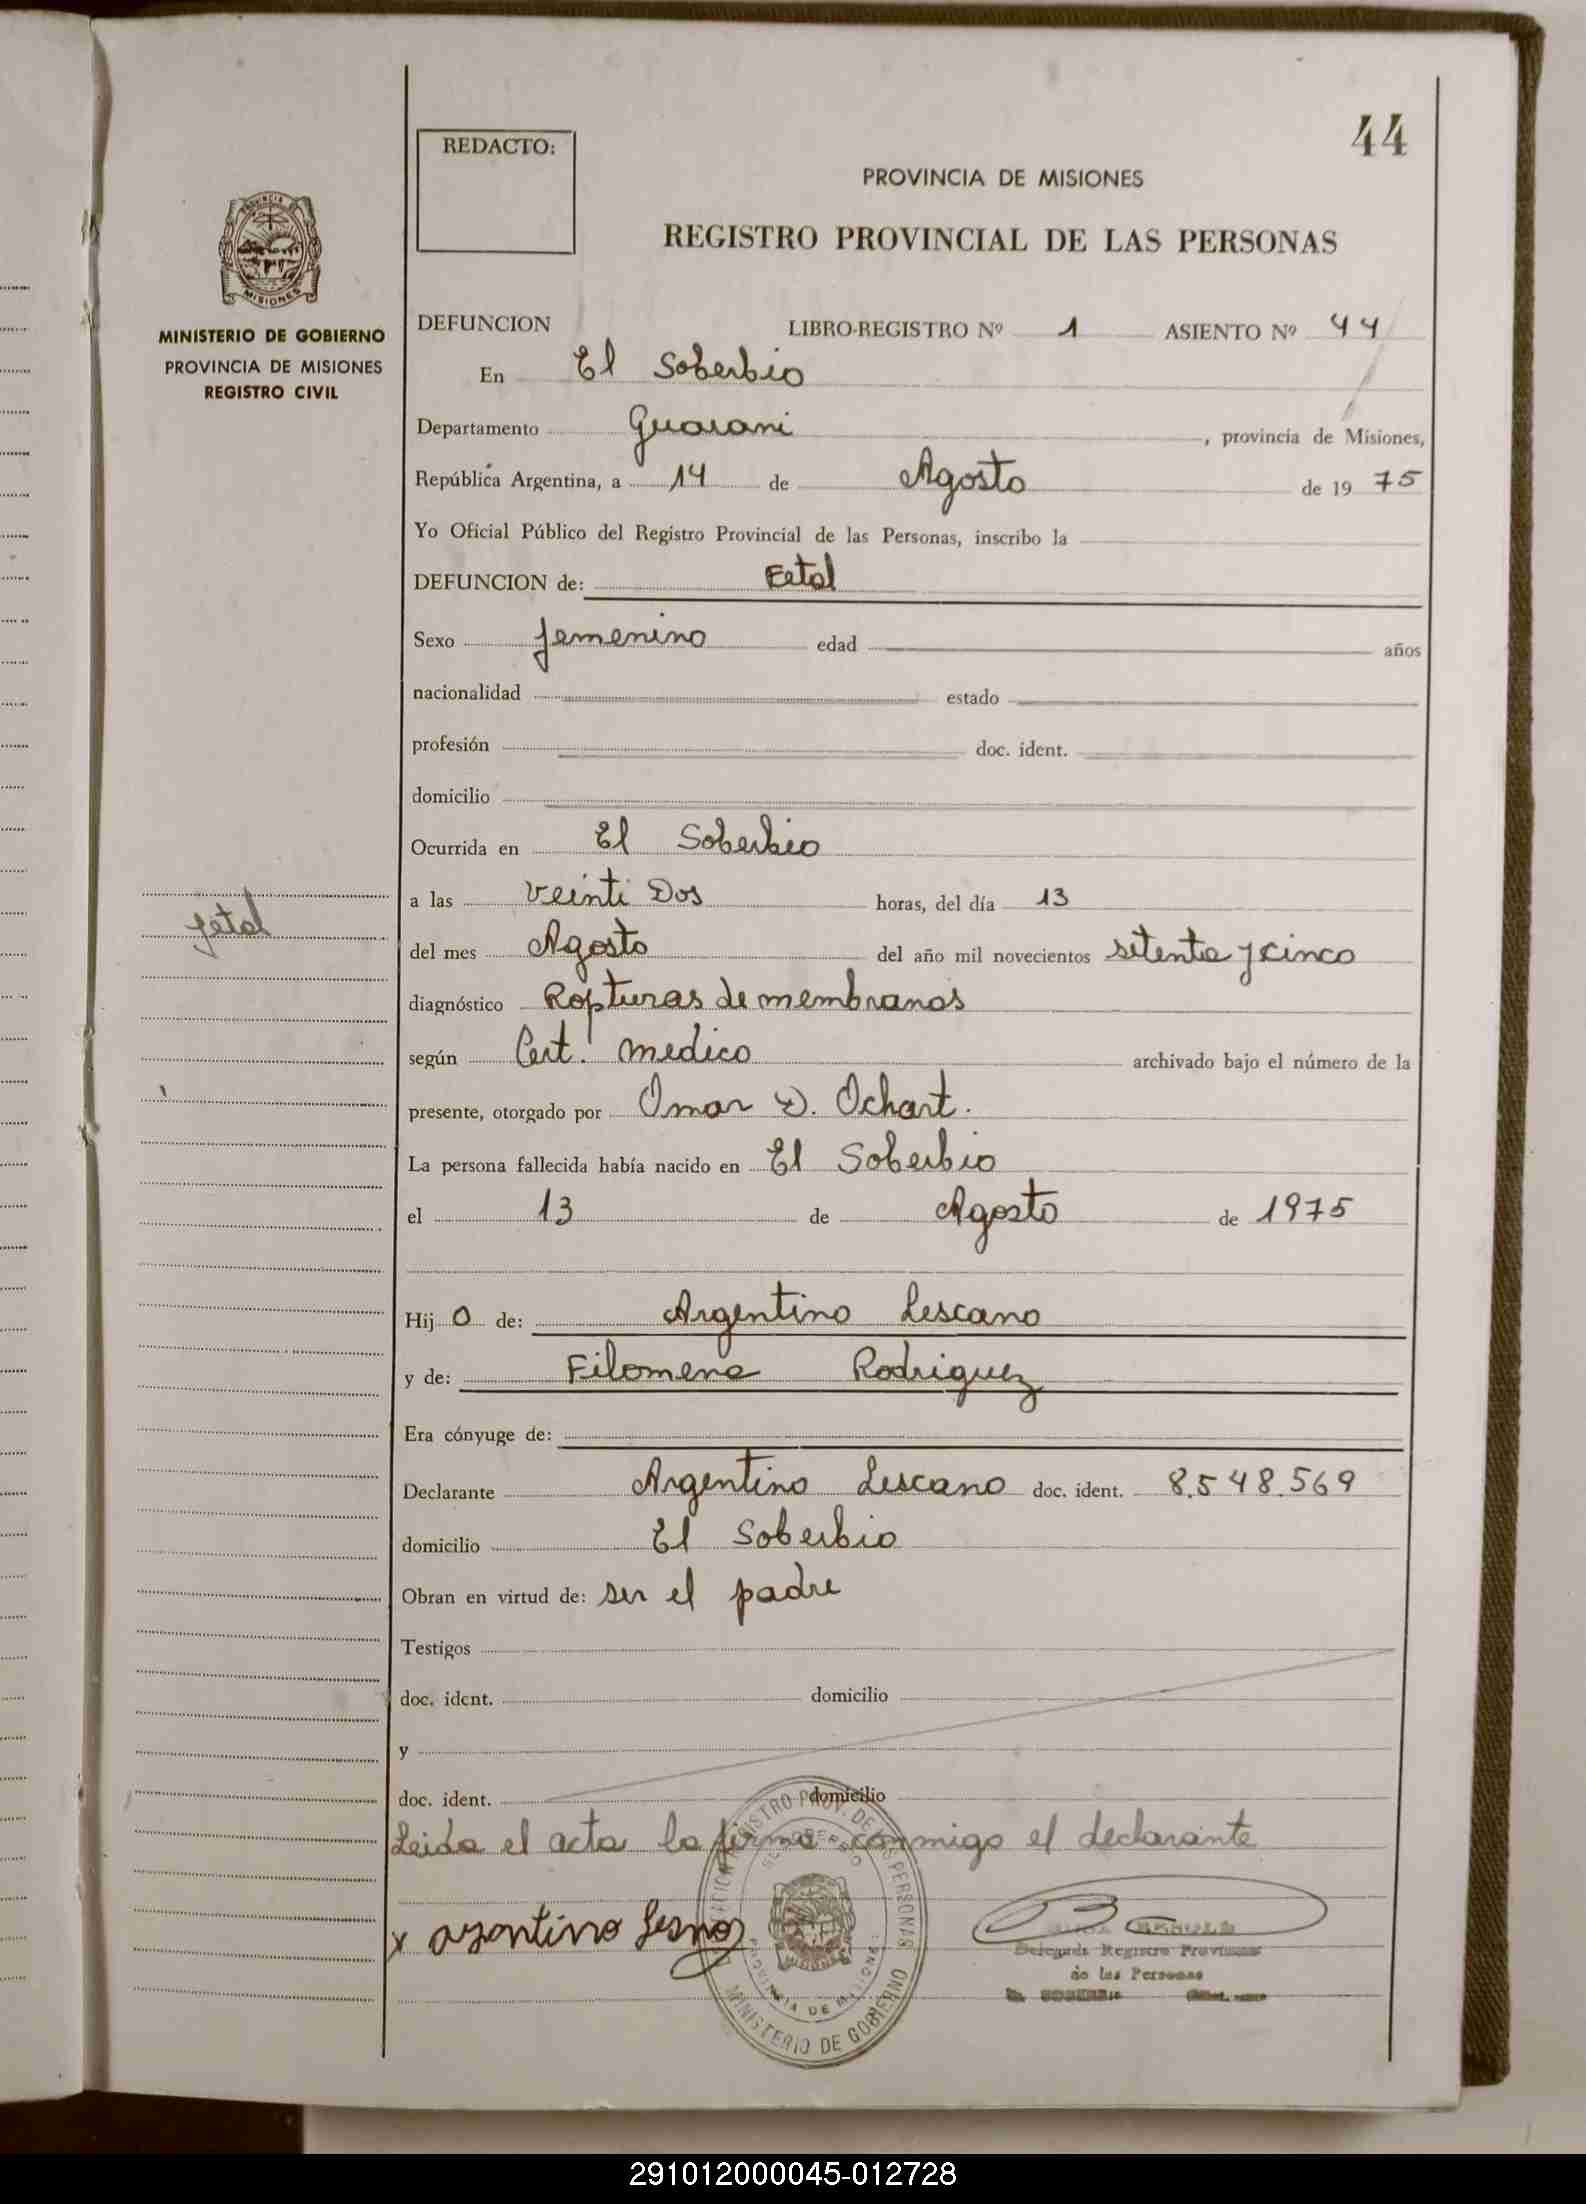 44
REDACTO:
PROVINCIA DE MISIONES
REGISTRO PROVINCIAL DE LAS PERSONAS
MISIONES
MINISTERIO DE GOBIERNO
PROVINCIA DE MISIONES
REGISTRO CIVIL
DEFUNCION LIBRO-REGISTRO Nº 1 ASIENTO Nº 44
En El Soberbio
Departamento Guarani, provincia de Misiones,
República Argentina, a 14 de Agosto de 1975
Yo Oficial Público del Registro Provincial de las Personas, inscribo la
DEFUNCION de: Fetal
Sexo femenino edad años
nacionalidad estado
profesión doc. ident.
domicilio
Ocurrida en El Soberbio
a las veinti Dos horas, del día 13
fetal
del mes Agosto del año mil novecientos setenta y cinco
diagnóstico Ropturas de membranas
según Cert. medico archivado bajo el número de la
presente, otorgado por Omar D. Ochart.
La persona fallecida había nacido en El Soberbio
el 13 de Agosto de 1975
Hijo de: Argentino Lescano
y de: Filomena Rodriguez
Era cónyuge de:
Declarante Argentino Lescano doc. ident. 8.548.569
domicilio El Soberbio
Obran en virtud de: ser el padre
Testigos
doc. ident. domicilio
y
doc. ident. domicilio
Leida el acta la firma conmigo el declarante
REGISTRO PROV. DE LAS PERSONAS
PROVINCIA DE MISIONES
MINISTERIO DE GOBIERNO
x
Delegada Registro Provincial
de las Personas
291012000045-012728